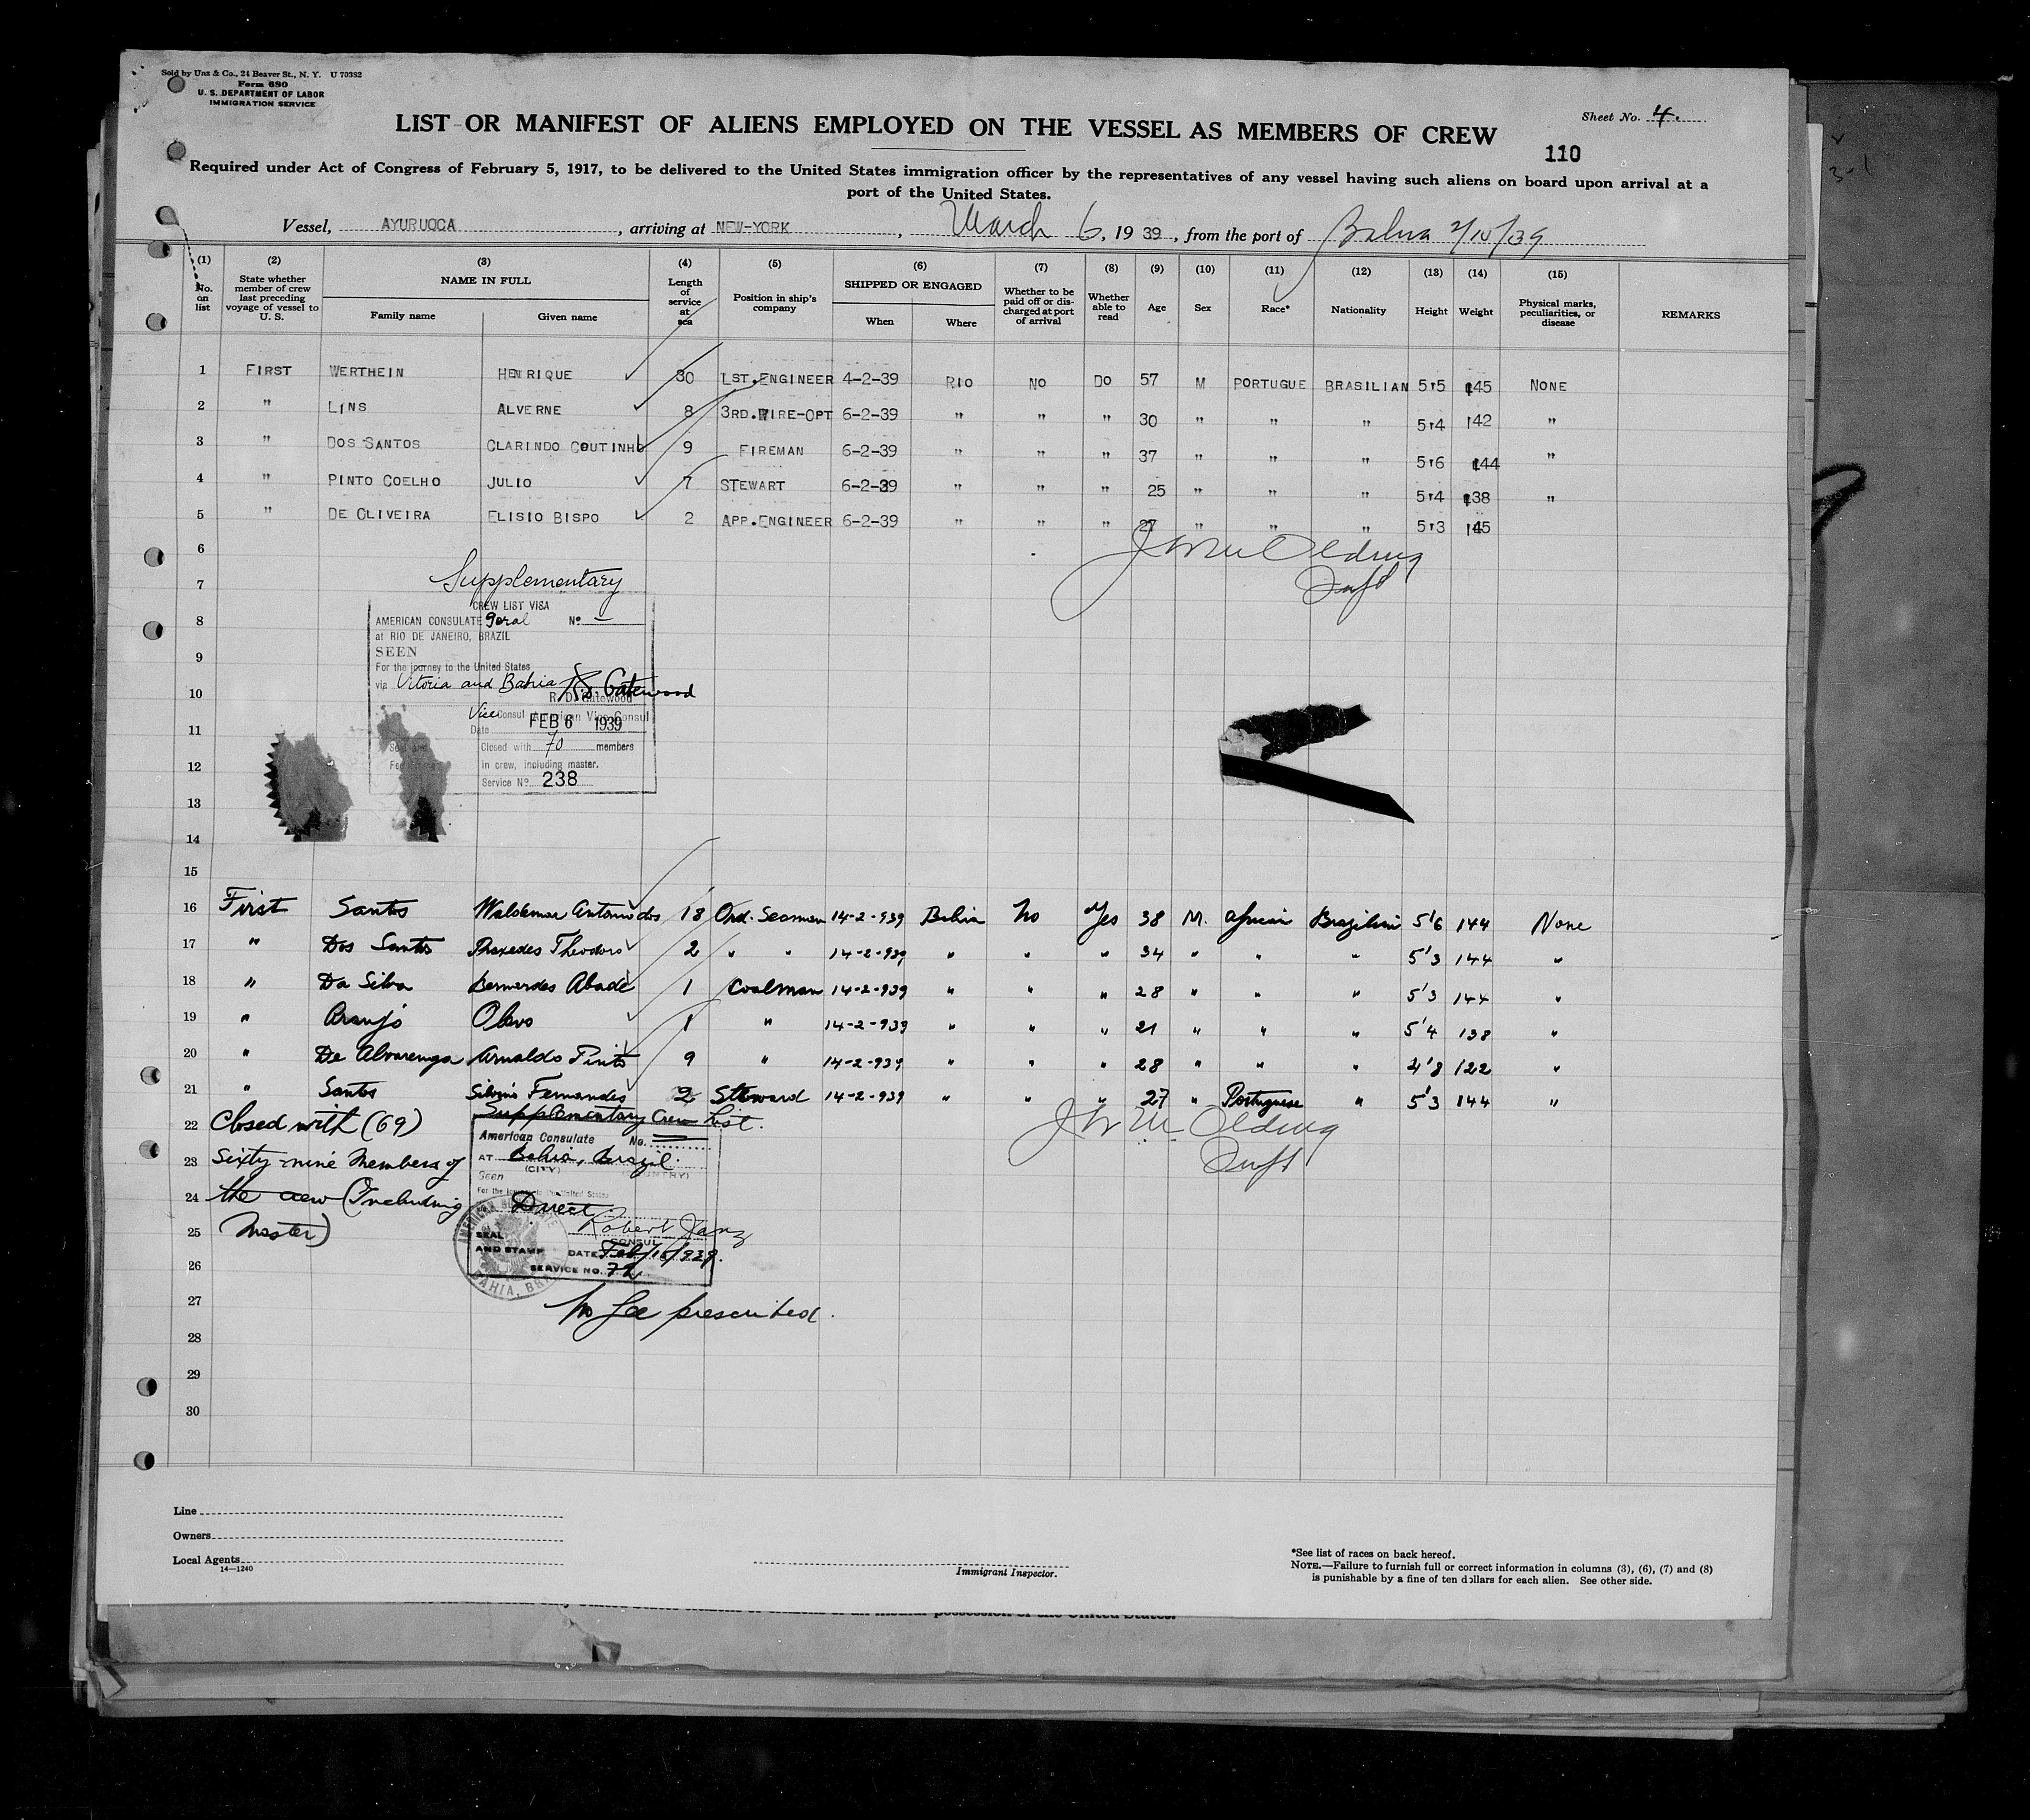 Sold by Unz & Co., 24 Beaver St., N. Y. U 70382
Form 680
U. S. DEPARTMENT OF LABOR
IMMIGRATION SERVICE
Sheet No. 4.
LIST OR MANIFEST OF ALIENS EMPLOYED ON THE VESSEL AS MEMBERS OF CREW
110
Required under Act of Congress of February 5, 1917, to be delivered to the United States immigration officer by the representatives of any vessel having such aliens on board upon arrival at a
port of the United States.
Vessel, AYURUOCA, arriving at NEW-YORK, March 6, 1939, from the port of Bahia
(1) (2) (3) (4) (5) (6) (7) (8) (9) (10) (11) (12) (13) (14) (15)
No. on list State whether member of crew last preceding voyage of vessel to U. S. NAME IN FULL Family name Given name Length of service at sea Position in ship's company SHIPPED OR ENGAGED When Where Whether to be paid off or discharged at port of arrival Whether able to read Age Sex Race* Nationality Height Weight Physical marks, peculiarities, or disease REMARKS
1 FIRST WERTHEIN HENRIQUE 30 1ST.ENGINEER 4-2-39 RIO NO DO 57 M PORTUGUE BRASILIAN 5'5 145 NONE
2 " LINS ALVERNE 8 3RD.WIRE-OPT 6-2-39 " " " 30 " " " 5'4 142 "
3 " DOS SANTOS CLARINDO COUTINHO 9 FIREMAN 6-2-39 " " " 37 " " " 5'6 144 "
4 " PINTO COELHO JULIO 7 STEWART 6-2-39 " " " 25 " " " 5'4 138 "
5 " DE OLIVEIRA ELISIO BISPO 2 APP.ENGINEER 6-2-39 " " " 27 " " " 5'3 145
6
7 Supplementary
CREW LIST VISA
8 AMERICAN CONSULATE Geral No. —
at RIO DE JANEIRO, BRAZIL
9 SEEN
For the journey to the United States
10 via Vitoria and Bahia R. D. Gatewood
R. D. Gatewood
Vice Consul American Vice Consul
11 Date FEB 6 1939
Closed with 70 members
12 in crew, including master.
Service No. 238
13
14
15
16 First Santos Waldemar Antonio dos 18 Ord. Seaman 14-2-939 Bahia No Yes 38 M. African Brazilian 5'6 144 None
17 " Dos Santos Praxedes Theodoro 2 " " 14-2-939 " " " 34 " " " 5'3 144 "
18 " Da Silva Bernardes Abade 1 Coalman 14-2-939 " " " 28 " " " 5'3 144 "
19 " Araujo Olavo 1 " 14-2-939 " " " 21 " " " 5'4 138 "
20 " De Alvarenga Arnaldo Pinto 9 " 14-2-939 " " " 28 " " " 4'8 122 "
21 " Santos Silvio Fernandes 2 Steward 14-2-939 " " " 27 " Portuguese " 5'3 144 "
22 Closed with (69) Supplementary Crew List.
American Consulate No.
23 Sixty-nine Members of AT Bahia, Brazil.
(CITY) (COUNTRY)
Seen
For the journey to the United States
24 the crew (Including Direct
25 Master) Robert Janz
CONSUL
SEAL AND STAMP DATE Feb/15/939.
26 SERVICE NO. 72
BAHIA, BRAZIL
27 No fee prescribed.
28
29
30
Line
Owners
Local Agents
14—1240
Immigrant Inspector.
*See list of races on back hereof.
NOTE.—Failure to furnish full or correct information in columns (3), (6), (7) and (8)
is punishable by a fine of ten dollars for each alien. See other side.